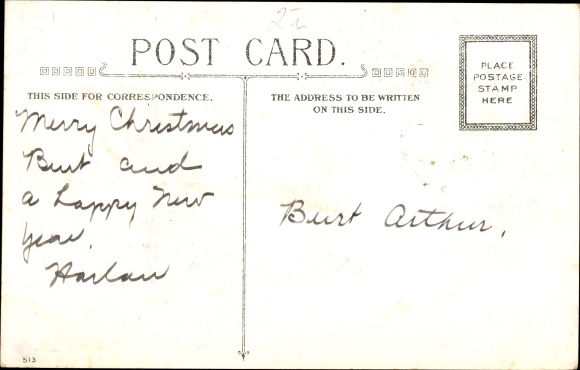 POST CARD.
THIS SIDE FOR CORRESPONDENCE.
Merry Christmas
Burt and
a happy New
year.
Harlan
THE ADDRESS TO BE WRITTEN
ON THIS SIDE.
PLACE
POSTAGE
STAMP
HERE
Burt Arthur,
513